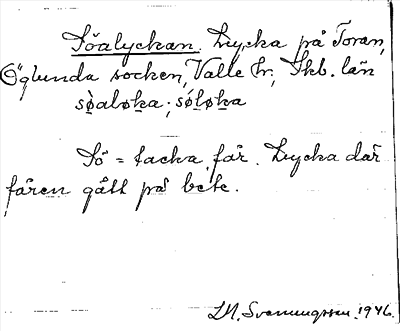 Söalyckan. Lycka på Toran,
Öglunda socken, Valle hr; Skb. län
sø̀aløka; sǿløka
Sö = tacka, får. Lycka där
fåren gått på bete.
1946.